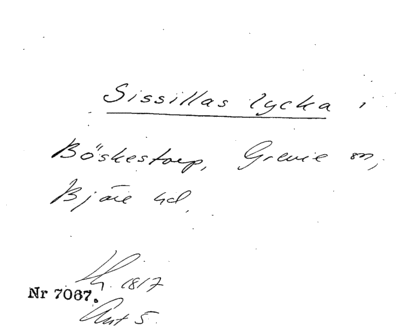 Sissillas lycka i
Böskestorp, Grevie sn,
Bjäre hd.
Nr 7067.
1817
Ant 5.